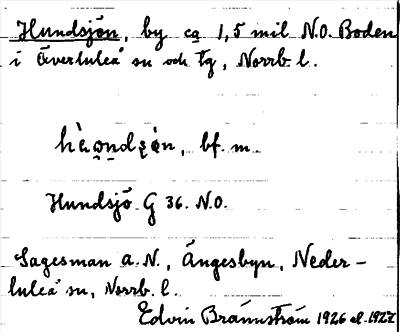 Hundsjön, by ca 1,5 mil N.O. Boden
i Överluleå sn och tg, Norrb. l.
bf. m.
Hundsjö G 36. N.O.
Sagesman A. N., Ängesbyn, Neder-
luleå sn, Norrb. l.
Edvin Brännström 1926 el. 1927